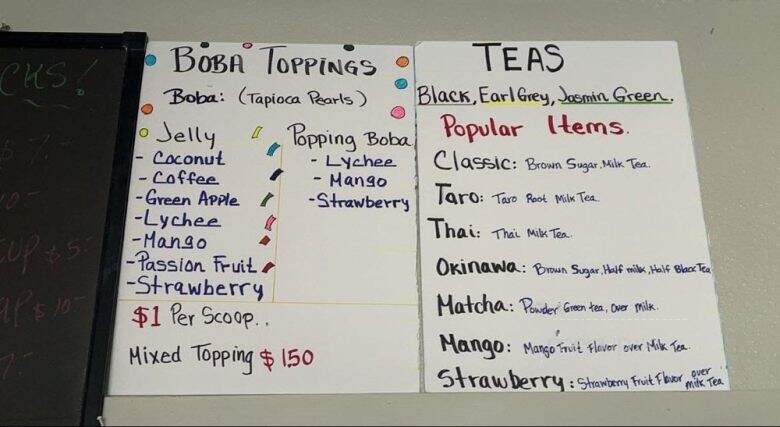 CKS!
UP $5-
$10-
BOBA TOPPINGS
Boba: (Tapioca Pearls)
Jelly
- Coconut
- Coffee
- Green Apple
- Lychee
- Mango
- Passion Fruit
- Strawberry
Popping Boba
- Lychee
- Mango
- Strawberry
$1 Per Scoop..
Mixed Topping $1.50
TEAS
Black, Earl Grey, Jasmin Green.
Popular Items.
Classic: Brown Sugar, Milk Tea.
Taro: Taro Root Milk Tea.
Thai: Thai Milk Tea.
Okinawa: Brown Sugar, Half milk, Half Black Tea
Matcha: Powder Green tea, over milk.
Mango: Mango Fruit Flavor over Milk Tea.
Strawberry: Strawberry Fruit Flavor over milk Tea